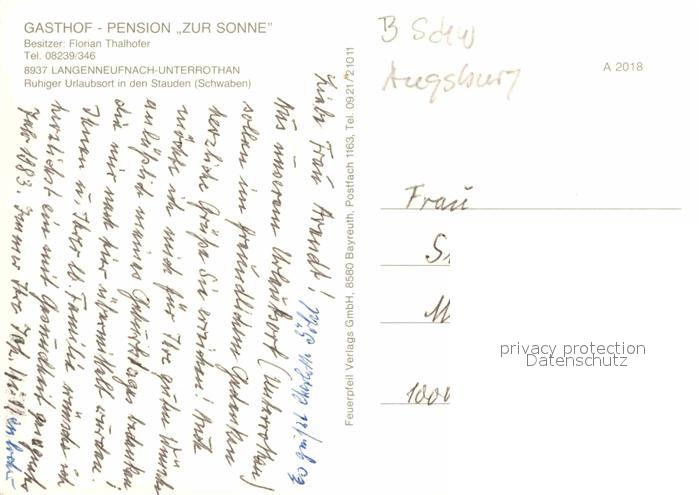 GASTHOF - PENSION „ZUR SONNE"
Besitzer: Florian Thalhofer
Tel. 08239/346
8937 LANGENNEUFNACH-UNTERROTHAN
Ruhiger Urlaubsort in den Stauden (Schwaben)
Liebe Frau Arendt!
Aus unserem Urlaubsort (Unterrothan)
sollen im freundlichen Gedenken
herzliche Grüße Sie erreichen! Auch
möchte ich mich für Ihre guten Wünsche
anläßlich meines Geburtstages bedanken,
die mir nach hier übermittelt wurden.
Ihnen u. Ihrer lb. Familie wünsche ich
herzlichst ein mit Gesundheit gesegnetes
Jahr 1983. Immer Ihre Joh.
es grüßt Charlotte
Feuerpfeil Verlags GmbH, 8580 Bayreuth, Postfach 1163, Tel. 0921/21011
B Schw
Augsburg
A 2018
Frau
S.
M
1000
privacy protection
Datenschutz